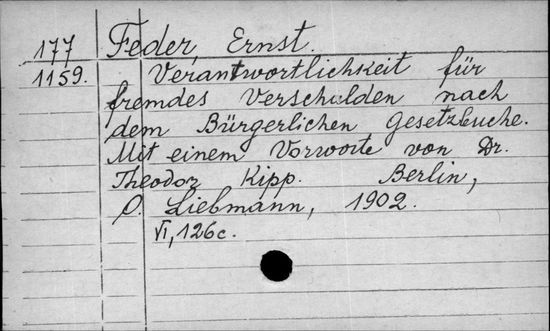 177 Feder, Ernst.
1159. Verantwortlichkeit für
fremdes Verschulden nach
dem Bürgerlichen Gesetzbuche.
Mit einem Vorworte von Dr.
Theodor Kipp. Berlin,
O. Liebmann, 1902.
VI, 126 c.